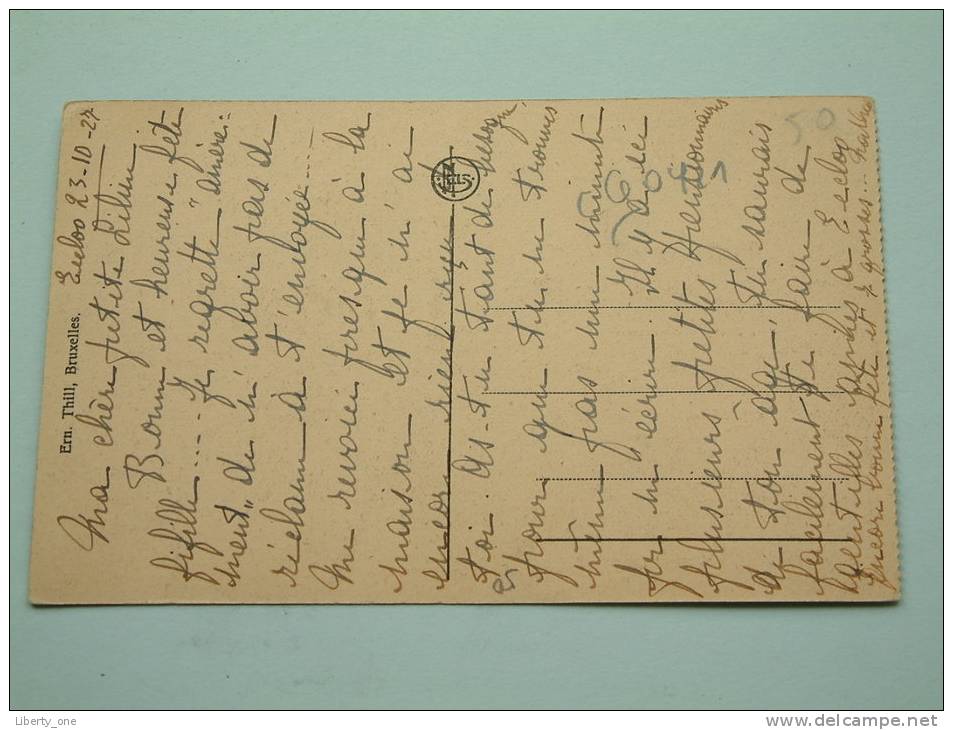 Ern. Thill, Bruxelles.
Eecloo 23-10-27
Ma chère petite Lilien
Bonne et heureuse fête
fifille.... Je regrette "amère-
ment" de n'avoir pas de
réclame à t'envoyée....
Me revoici presqu'à la
maison et je n'ai
encore rien reçu de
toi. As-tu tant de
pour que tu ne trouves
même pas une minute
pour m'écrire? Il y a ici
plusieurs petites pensionnaires
de ton âge, tu saurais
facilement te faire de
gentilles à Eecloo
Encore bonne fête et grosses...
50
Liberty_one
www.delcampe.net